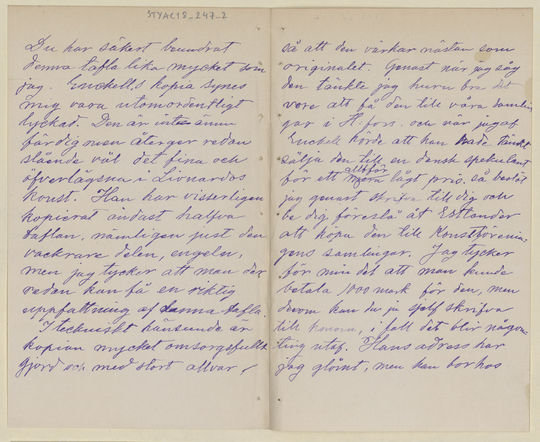 STYAC18_247_2
Du har säkert beundrat
denna tafla lika mycket som
jag. Enckells kopia synes
mig vara utomordentligt
lyckad. Den är inte ännu
färdig men återger redan
slående väl det fina och
öfverlägsna i Lionardos
konst. Han har visserligen
kopierat endast halfva
taflan, nämligen just den
vackrare delen, engeln,
men jag tycker att man der
redan kan få en riktig
uppfattning af denna tafla.
I tekniskt hänseende är
kopian mycket omsorgsfullt
gjord och med stort allvar
så att den värkar nästan som
originalet. Genast när jag såg
den tänkte jag huru bra det
vore att få den till våra samlin-
gar i H:fors. och när jag af
Enckell hörde att han hade tänkt
sälja den till en dansk spekulant
för ett alltför lågt pris, så beslöt
jag genast skrifva till dig och
be dig föreslå åt Estlander
att köpa den till Konstförenin-
gens samlingar. Jag tycker
för min del att man kunde
betala 1000 mark för den, men
derom kan du ju sjelf skrifva
till honom, i fall det blir någon-
ting utaf. Hans adress har
jag glömt, men han bor hos